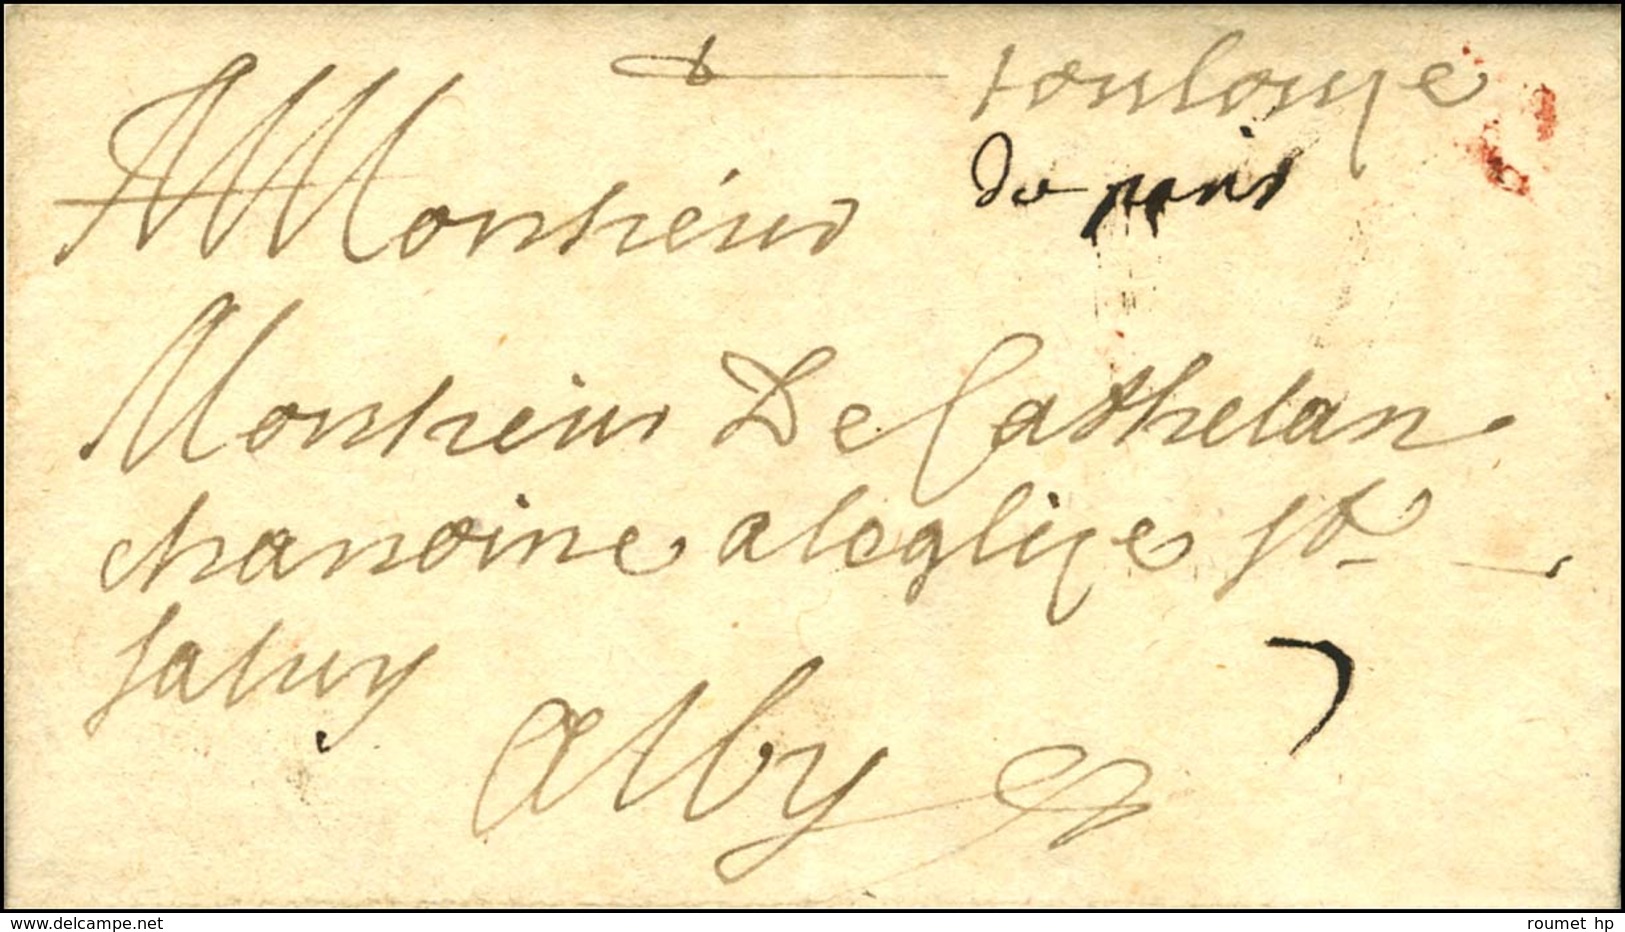 toulouze
de paris
A Monsieur
Monsieur De Cathelan
chanoine a leglize st.
salvy
Alby
7
delcampe.net
roumet hp